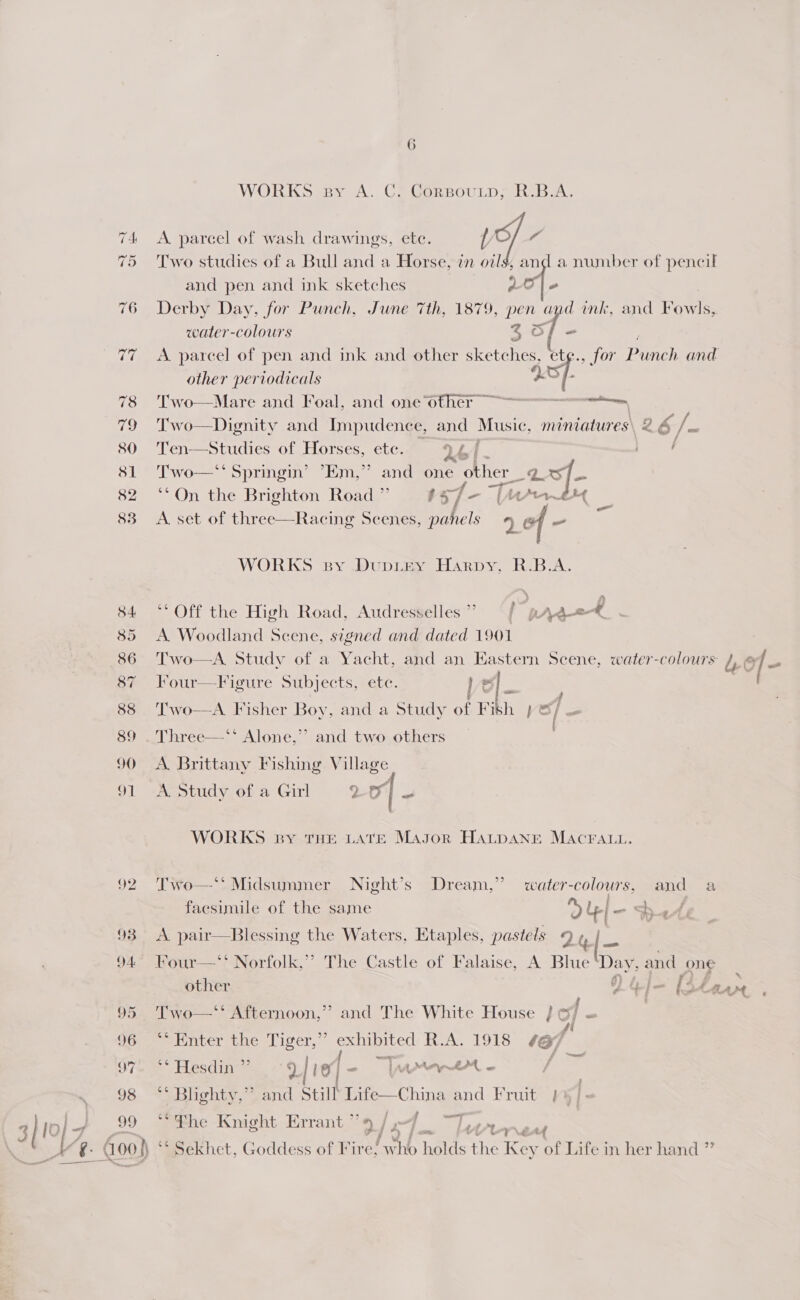 6
WORKS BY A. C. CORBOULD, R.B.A.
74 A parcel of wash drawings, etc. 10/-
75 Two studies of a Bull and a Horse, in oils, and a number of pencil
and pen and ink sketches 20/-
76 Derby Day, for Punch, June 7th, 1879, pen and ink, and Fowls,
water-colours 30/-
77 A parcel of pen and ink and other sketches, etc., for Punch and
other periodicals 20/-
78 Two—Mare and Foal, and one other
79 Two—Dignity and Impudence, and Music, miniatures 26/-
80 Ten—Studies of Horses, etc. 26/-
81 Two—“Springin’ ’Em,” and one other 25/-
82 “On the Brighton Road” 15/-
83 A set of three—Racing Scenes, panels 20/-
WORKS BY DUDLEY HARDY, R.B.A.
84 “Off the High Road, Audresselles”
85 A Woodland Scene, signed and dated 1901
86 Two—A Study of a Yacht, and an Eastern Scene, water-colours
87 Four—Figure Subjects, etc. 10/-
88 Two—A Fisher Boy, and a Study of Fish 10/-
89 Three—“Alone,” and two others
90 A Brittany Fishing Village
91 A Study of a Girl 20/-
WORKS BY THE LATE MAJOR HALDANE MACFALL.
92 Two—“Midsummer Night’s Dream,” water-colours, and a
facsimile of the same
93 A pair—Blessing the Waters, Etaples, pastels
94 Four—“Norfolk,” The Castle of Falaise, A Blue Day, and one
other
95 Two—“Afternoon,” and The White House 10/-
96 “Enter the Tiger,” exhibited R.A. 1918
97 “Hesdin” 2/10/-
98 “Blighty,” and Still Life—China and Fruit
99 “The Knight Errant”
100 “Sekhet, Goddess of Fire, who holds the Key of Life in her hand”